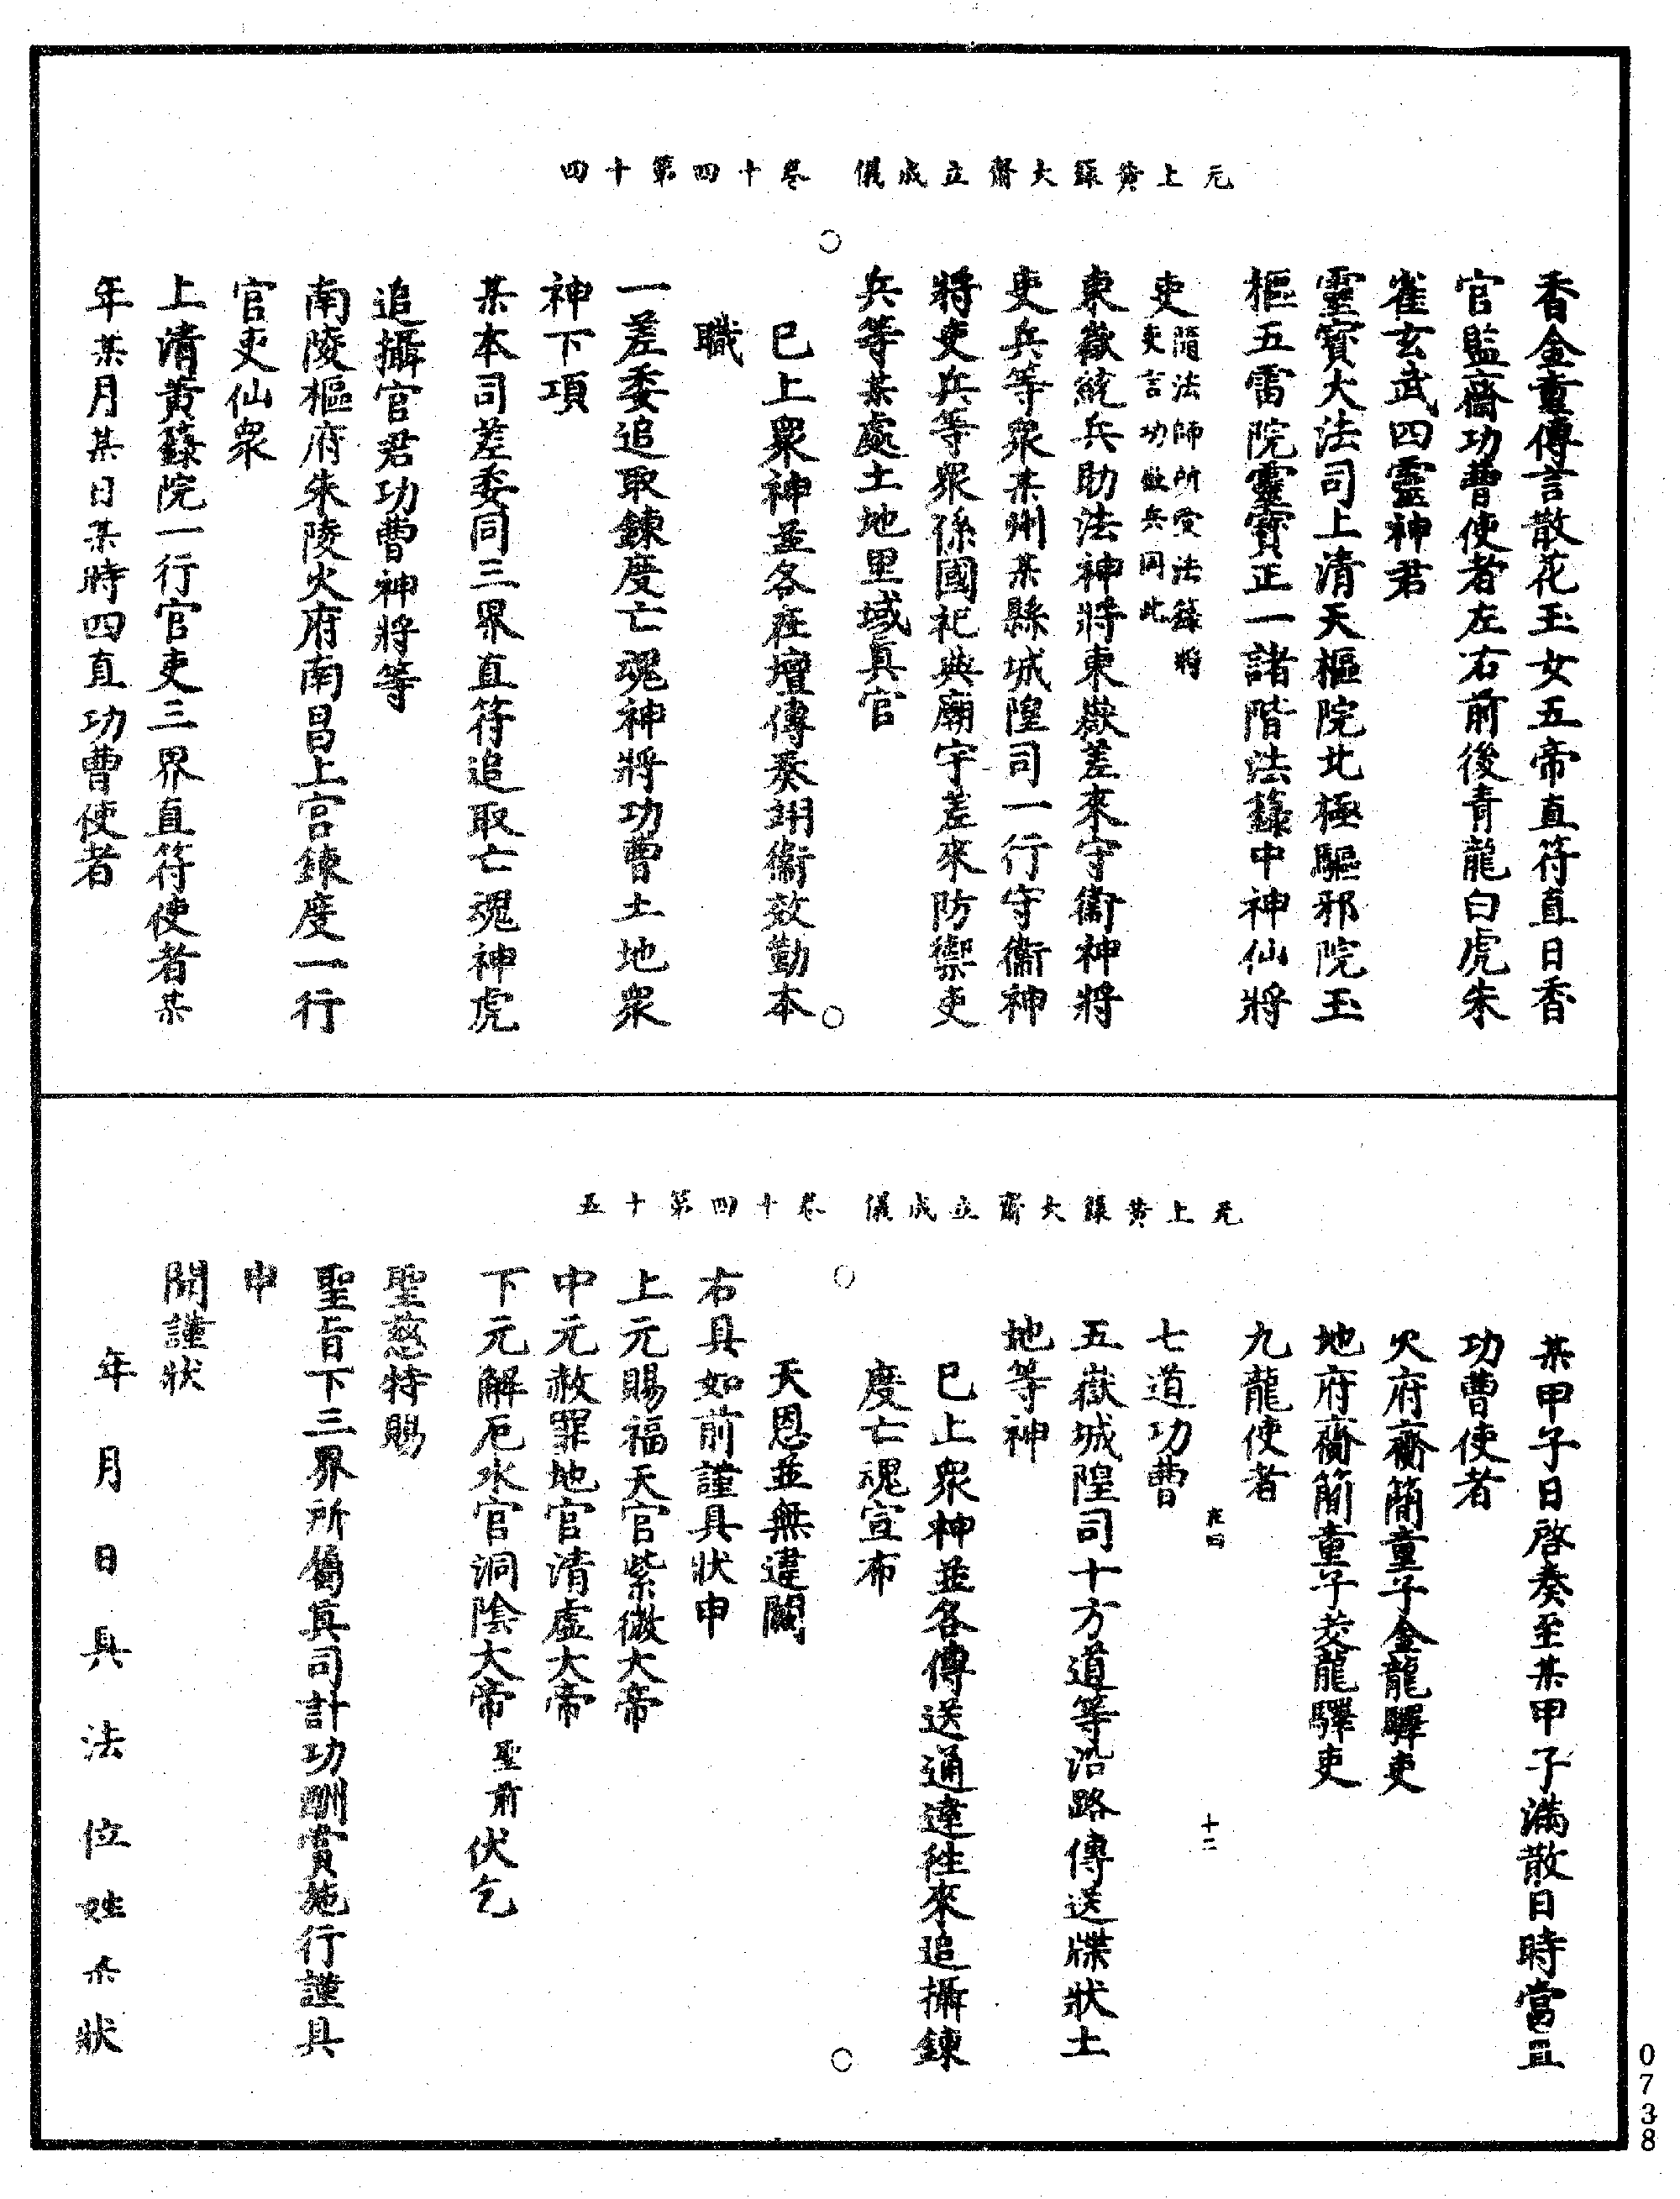 元上黃籙大齋立成儀　卷十四第十四
香金童傳言散花玉女五帝直符直日香
官監齋功曹使者左右前後青龍白虎朱
雀玄武四靈神君
靈寶大法司上清天樞院北極驅邪院玉
樞五雷院靈寶正一諸階法籙中神仙將
吏隨法師所受法籙將
吏言功歛兵同此
東嶽統兵助法神將東嶽差來守衞神將
吏兵等衆某州某縣城隍司一行守衞神
將吏兵等衆係國祀典廟宇差來防禦吏
兵等某處土地里域眞官
已上衆神並各在壇傳奏翊衞效勤本
職
一差委追取鍊度亡魂神將功曹土地衆
神下項
某本司差委同三界直符追取亡魂神虎
追攝官君功曹神將等
南陵樞府朱陵火府南昌上宮鍊度一行
官吏仙衆
上清黃籙院一行官吏三界直符使者某
年某月某日某時四直功曹使者
元上黃籙大齋立成儀　卷十四第十五
某甲子日啓奏至某甲子滿散日時當直
功曹使者
火府齋簡童子金龍驛吏
地府齋簡童子茭龍驛吏
九龍使者
十二
七道功曹
五嶽城隍司十方道等沿路傳送牒狀土
地等神
已上衆神並各傳送通達徃來追攝鍊
度亡魂宣布
天恩並無違闕
右具如前謹具狀申
上元賜福天官紫微大帝
中元赦罪地官清虛大帝
下元解厄水官洞陰大帝聖前伏乞
聖慈特賜
聖旨下三界所屬眞司計功酬賞施行謹具
申
聞謹狀
年月日具法位姓某狀
0738